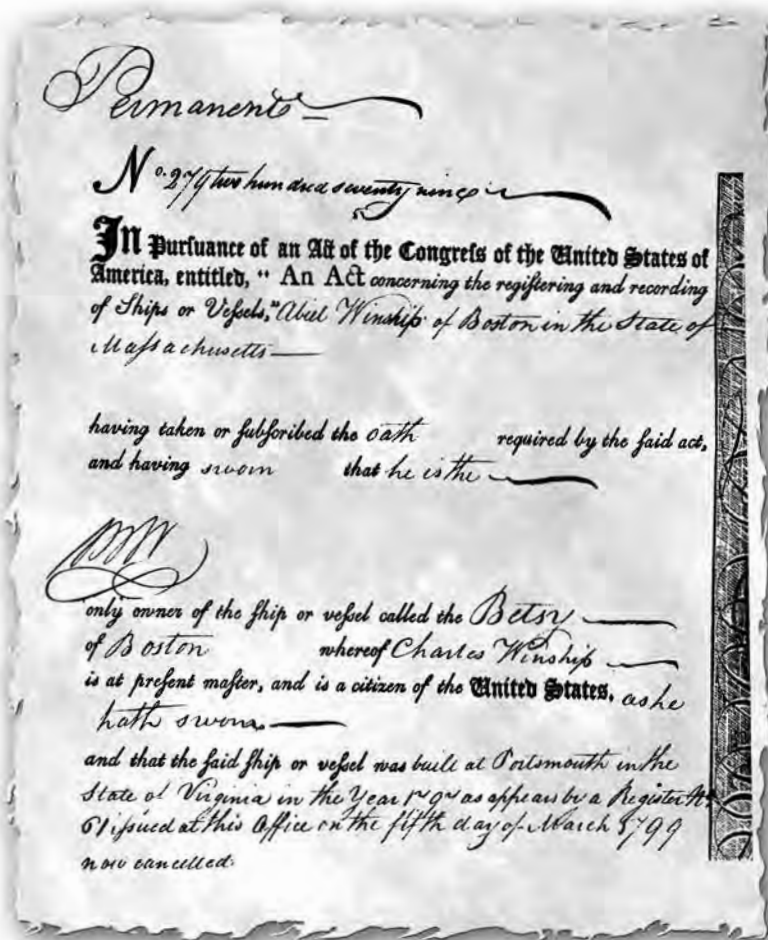 Permanent
No. 279 two hundred seventy nine
In Purſuance of an Act of the Congreſs of the United States of
America, entitled, "An Act concerning the regiſtering and recording
of Ships or Veſſels," Abiel Winship of Boston in the State of
Maſsachusetts
having taken or ſubſcribed the oath required by the ſaid act,
and having sworn that he is the
only owner of the ſhip or veſſel called the Betsy
of Boston whereof Charles Winship
is at preſent maſter, and is a citizen of the United States, as he
hath sworn
and that the ſaid ſhip or veſſel was built at Portsmouth in the
State of Virginia in the Year as appears by a Register No.
61 iſsued at this Office on the fifth day of March 1799
now cancelled